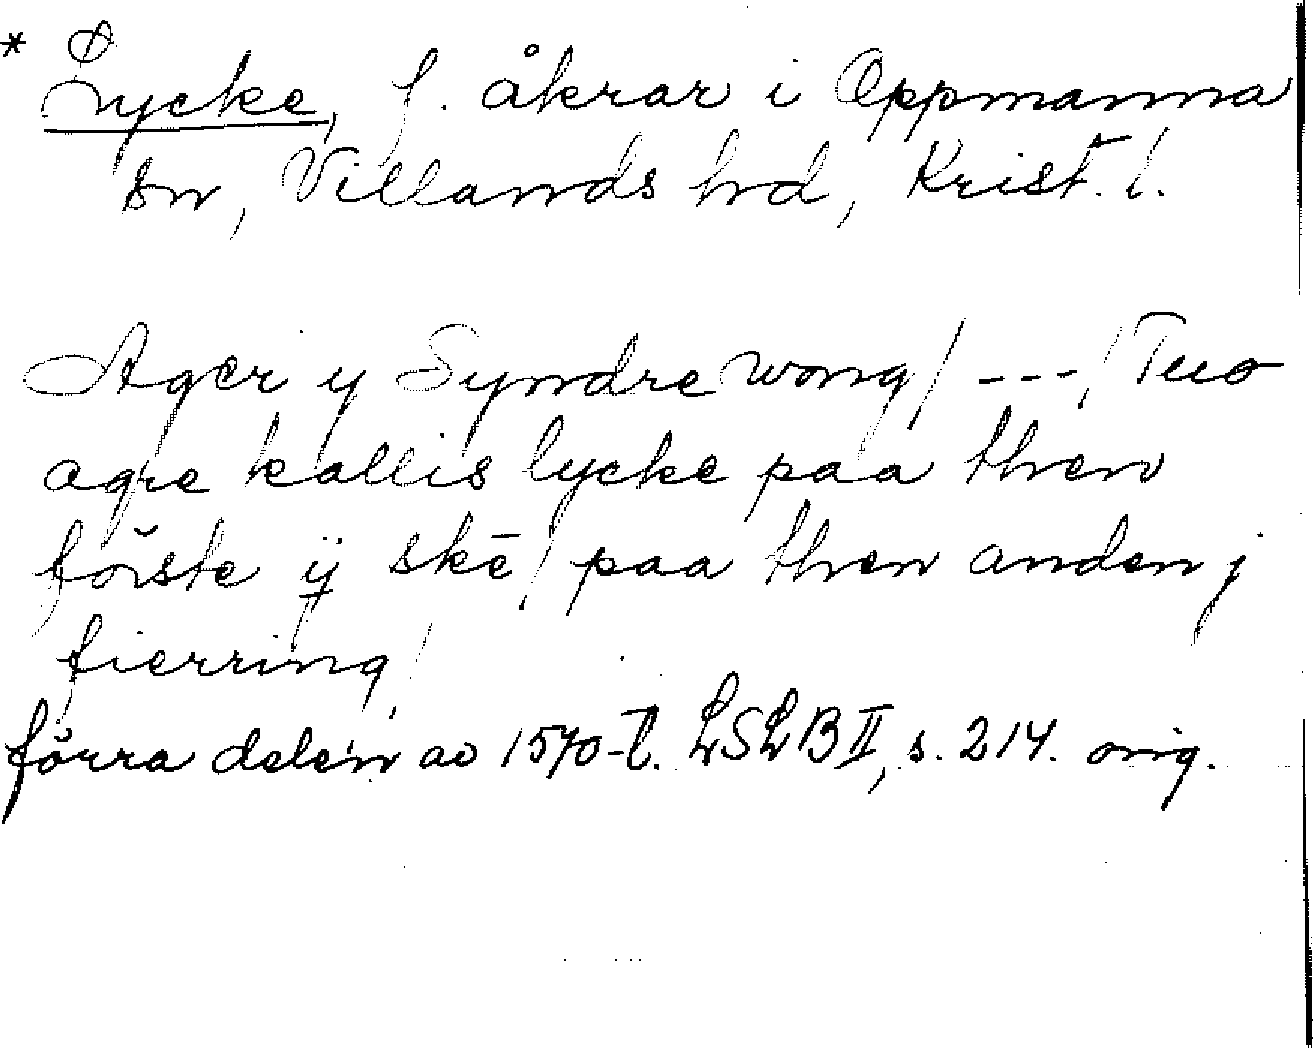 * Lycke, f. åkrar i Oppmanna
sn, Villands hd, Krist. l.
Ager ÿ Syndre wong/ ---/ Tuo
agre kallis lycke paa then
förste ij skē/ paa then anden j
fierring/
förra delen av 1570-t. LSLB II, s. 214. orig.